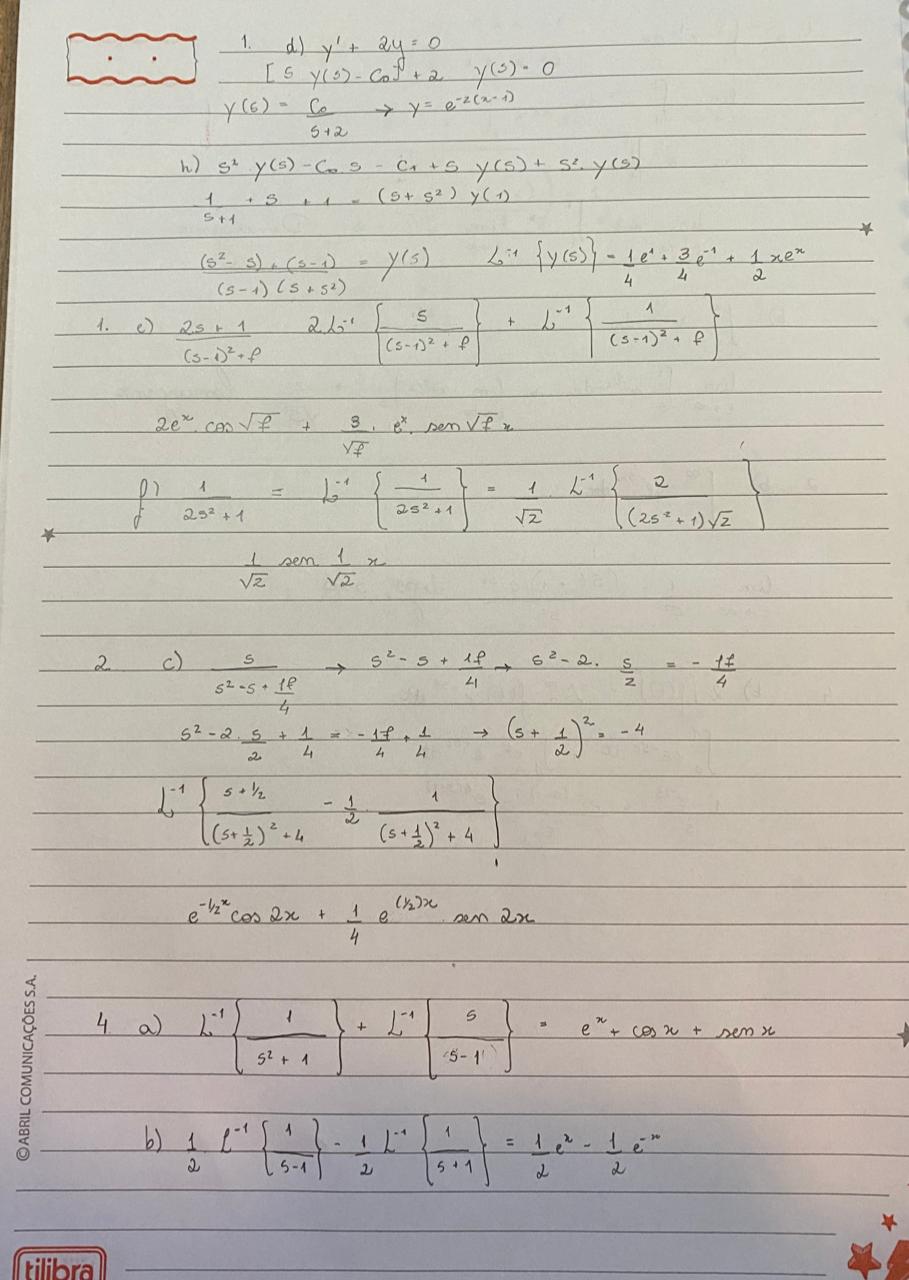 1. d) y' + 2y = 0
[s y(s) - C₀] + 2 y(s) = 0
y(s) = C₀/(s+2) → y = e^(-2(x-1))
h) s² y(s) - C₀ s - C₁ + s y(s) + s². y(s)
1/(s+1) + s + 1 = (s + s²) y(1)
((s² - s) + (s-1))/((s-1)(s+s²)) = y(s) L⁻¹ {y(s)} = 1/4 e¹ + 3/4 e⁻¹ + 1/2 xeˣ
1. e) (2s + 1)/((s-1)² + 7) 2.L⁻¹ {s/((s-1)² + 7)} + L⁻¹ {1/((s-1)² + 7)}
2eˣ. cos √7 + 3/√7 . eˣ. sen √7 x
f) 1/(2s² + 1) = L⁻¹ {1/(2s² + 1)} = 1/√2 . L⁻¹ {2/((2s² + 1)√2)}
1/√2 sen 1/√2 x
2 c) s/(s² - s + 17/4) → s² - s + 17/4 → s² - 2. s/2 = - 17/4
s² - 2. s/2 + 1/4 = - 17/4 + 1/4 → (s + 1/2)² = -4
L⁻¹ {(s + 1/2)/((s + 1/2)² + 4) - 1/2 . 1/((s + 1/2)² + 4)}
e^(-1/2 x) cos 2x + 1/4 e^((1/2)x) . sen 2x
4 a) L⁻¹ {1/(s² + 1)} + L⁻¹ {s/(s-1)} = eˣ + cos x + sen x
b) 1/2 L⁻¹ {1/(s-1)} - 1/2 L⁻¹ {1/(s+1)} = 1/2 eˣ - 1/2 e⁻ˣ
©ABRIL COMUNICAÇÕES S.A.
tilibra